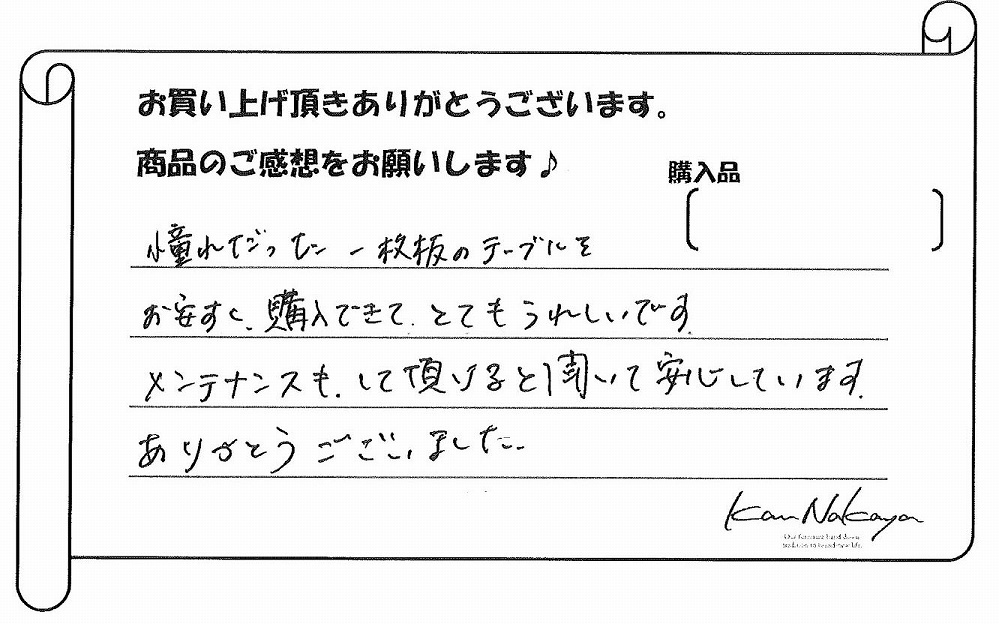 お買い上げ頂きありがとうございます。
商品のご感想をお願いします♪
購入品
憧れだった一枚板のテーブルを
お安すく、購入できて、とてもうれしいです。
メンテナンスも、して頂けると聞いて安心しています。
ありがとうございました。
Kan Nakaya